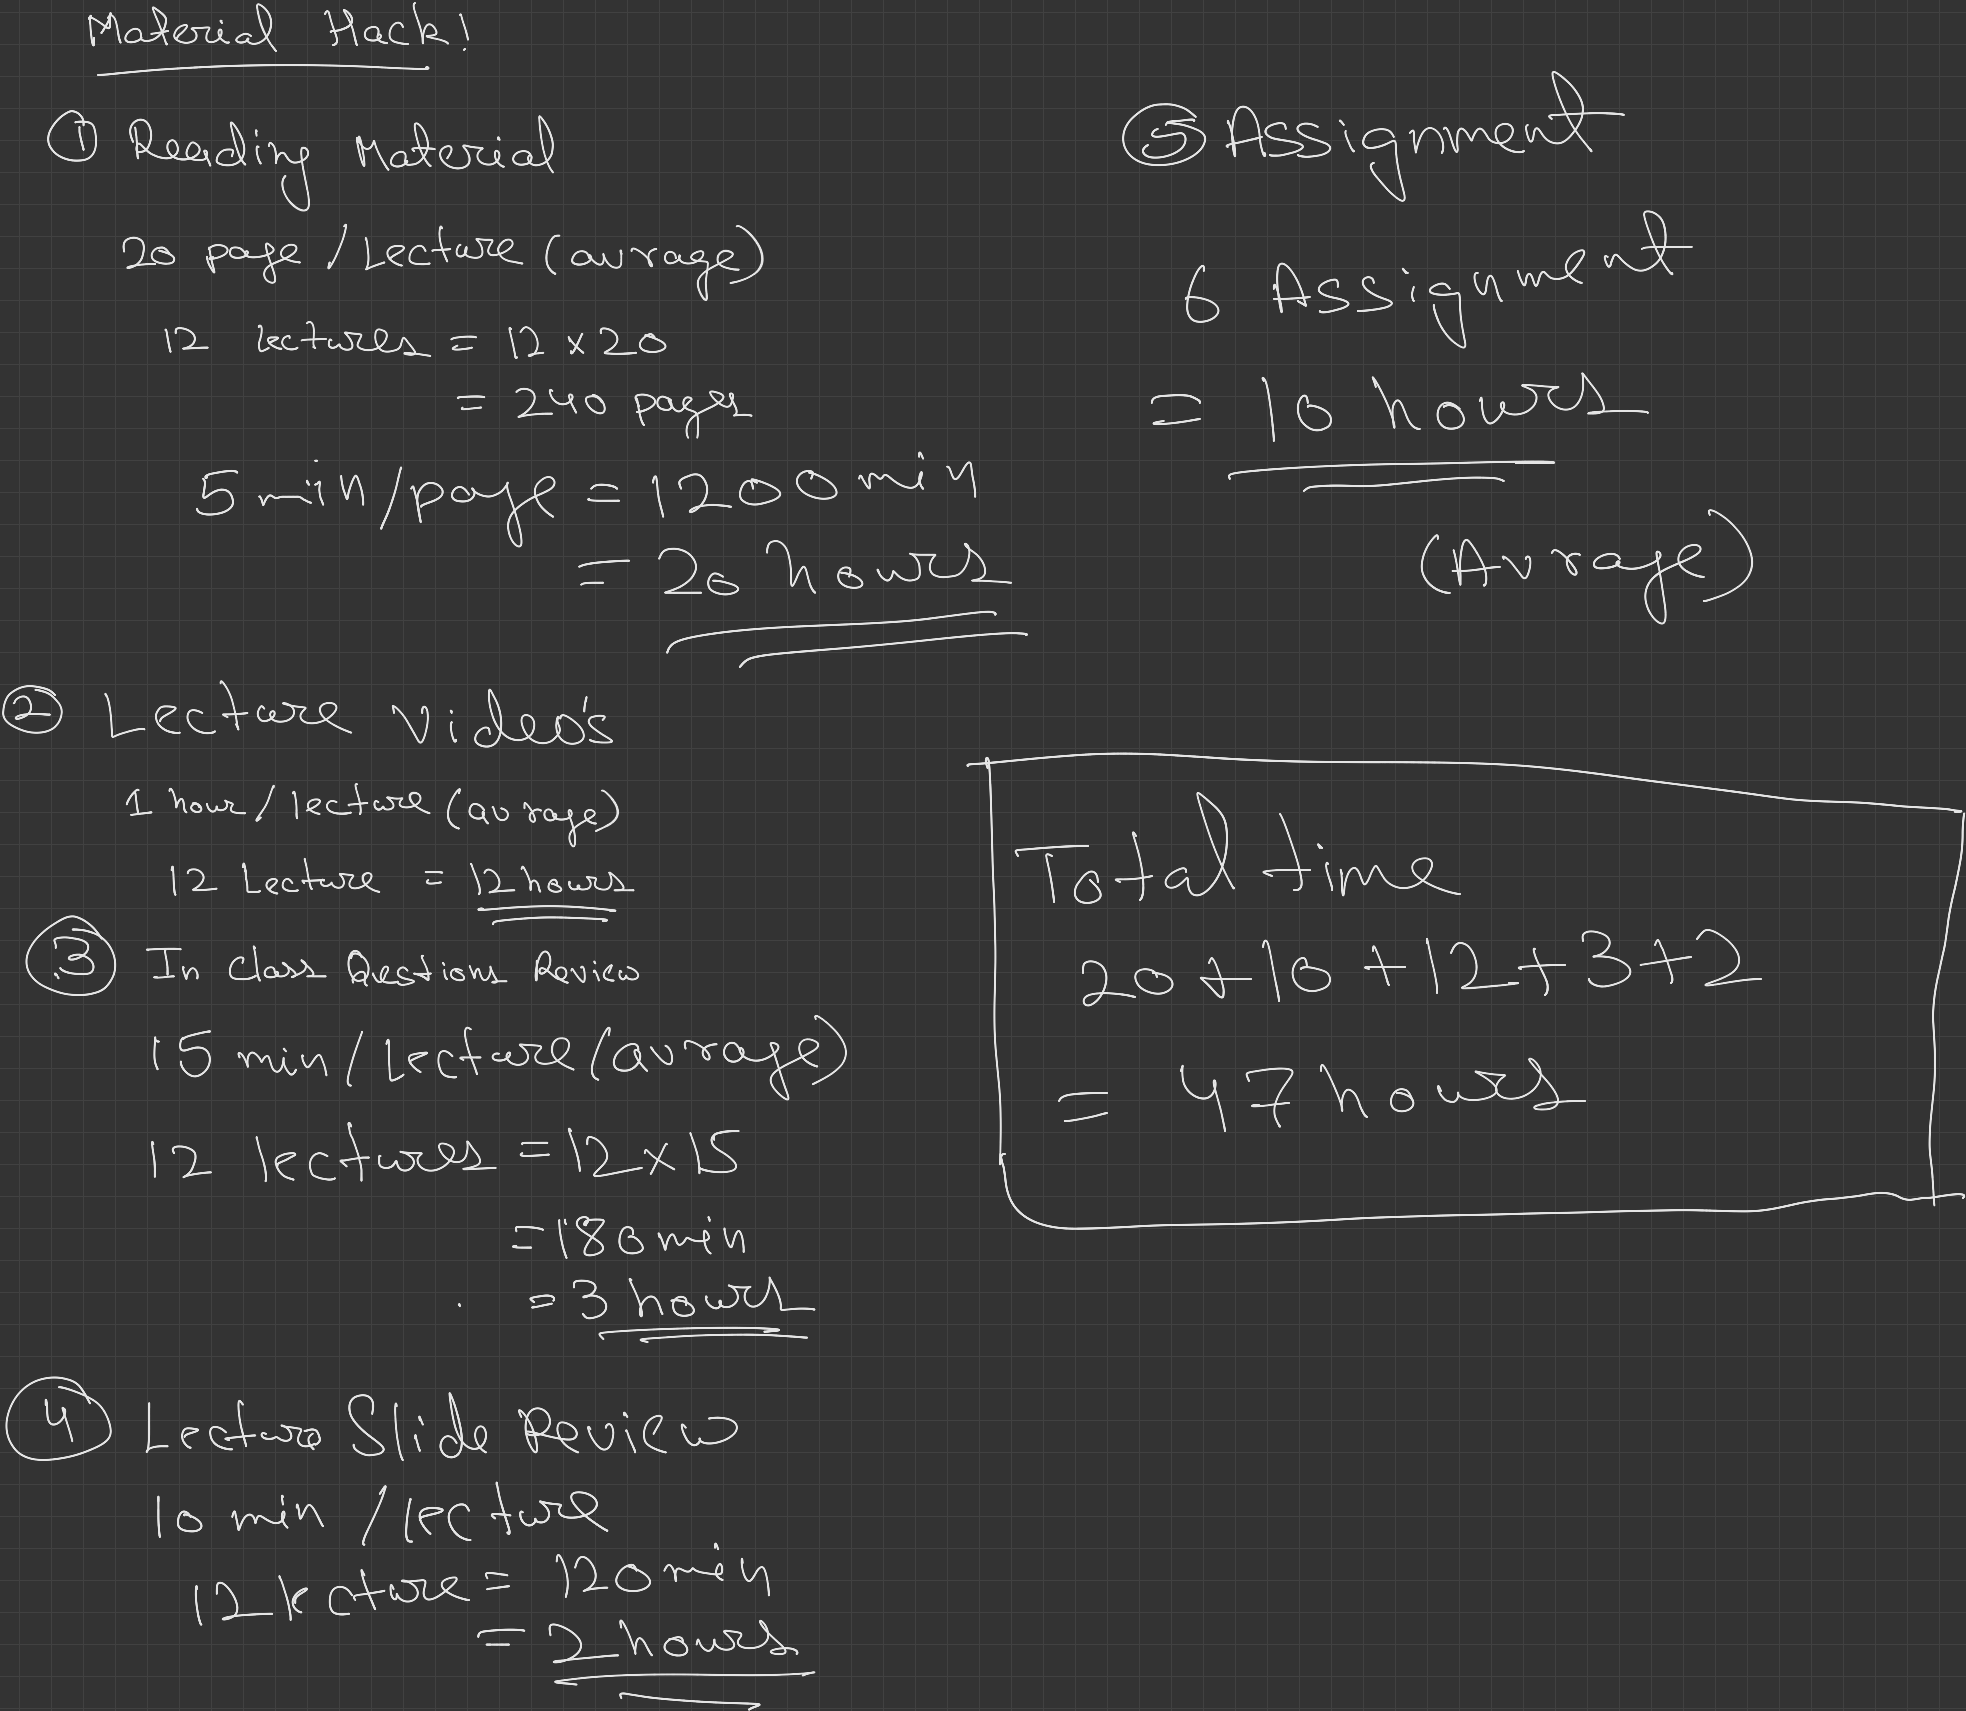 Material Hack!
① Reading Material
20 page / Lecture (avrage)
12 lectures = 12 x 20
= 240 pages
5 min/page = 1200 min
= 20 hours
② Lecture video's
1 hour / lecture (avrage)
12 Lecture = 12 hours
③ In Class Questions Review
15 min / Lecture (avrage)
12 lectures = 12 x 15
= 180 min
= 3 hours
④ Lecture Slide Review
10 min / lecture
12 lecture = 120 min
= 2 hours
⑤ Assignment
6 Assignment
= 10 hours
(Avrage)
Total time
20 + 10 + 12 + 3 + 2
= 47 hours